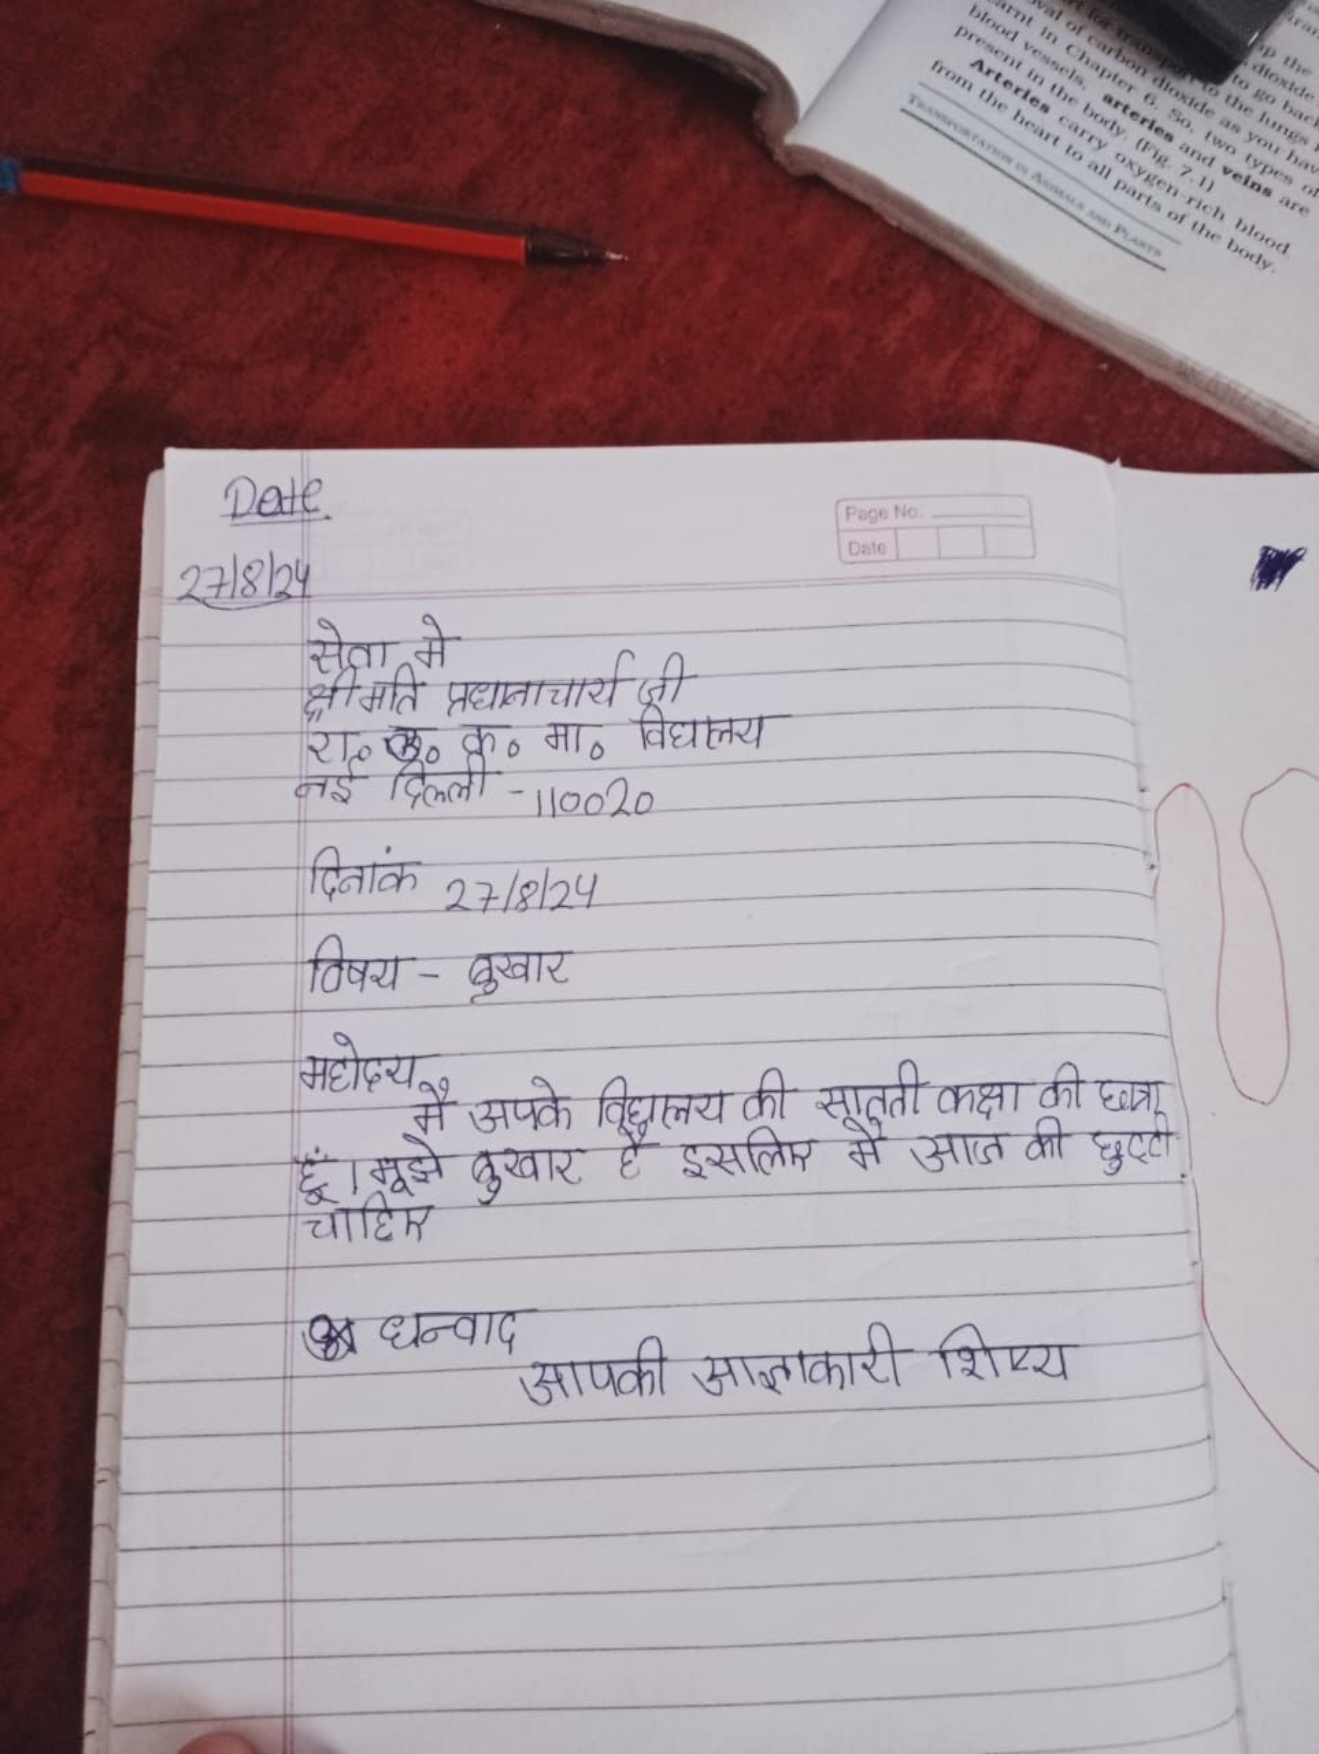 val of carbon dioxide
arnt in Chapter 6. So, two types of
blood vessels, arteries and veins are
present in the body. (Fig. 7.1)
Arteries carry oxygen-rich blood
from the heart to all parts of the body.
TRANSPORTATION IN ANIMALS AND PLANTS
Date
Page No.
Date
27/8/24
सेवा मे
क्षीमति प्रधानाचार्य जी
रा॰ क॰ मा॰ विद्यालय
नई दिल्ली - 110020
दिनांक 27/8/24
विषय - बुखार
महोदय
मैं अपके विद्यालय की सातती कक्षा की छात्रा
हूँ। मूझे बुखार है इसलिए मैं आज की छुट्टी
चाहिए
धन्वाद
आपकी आज्ञाकारी शिष्य